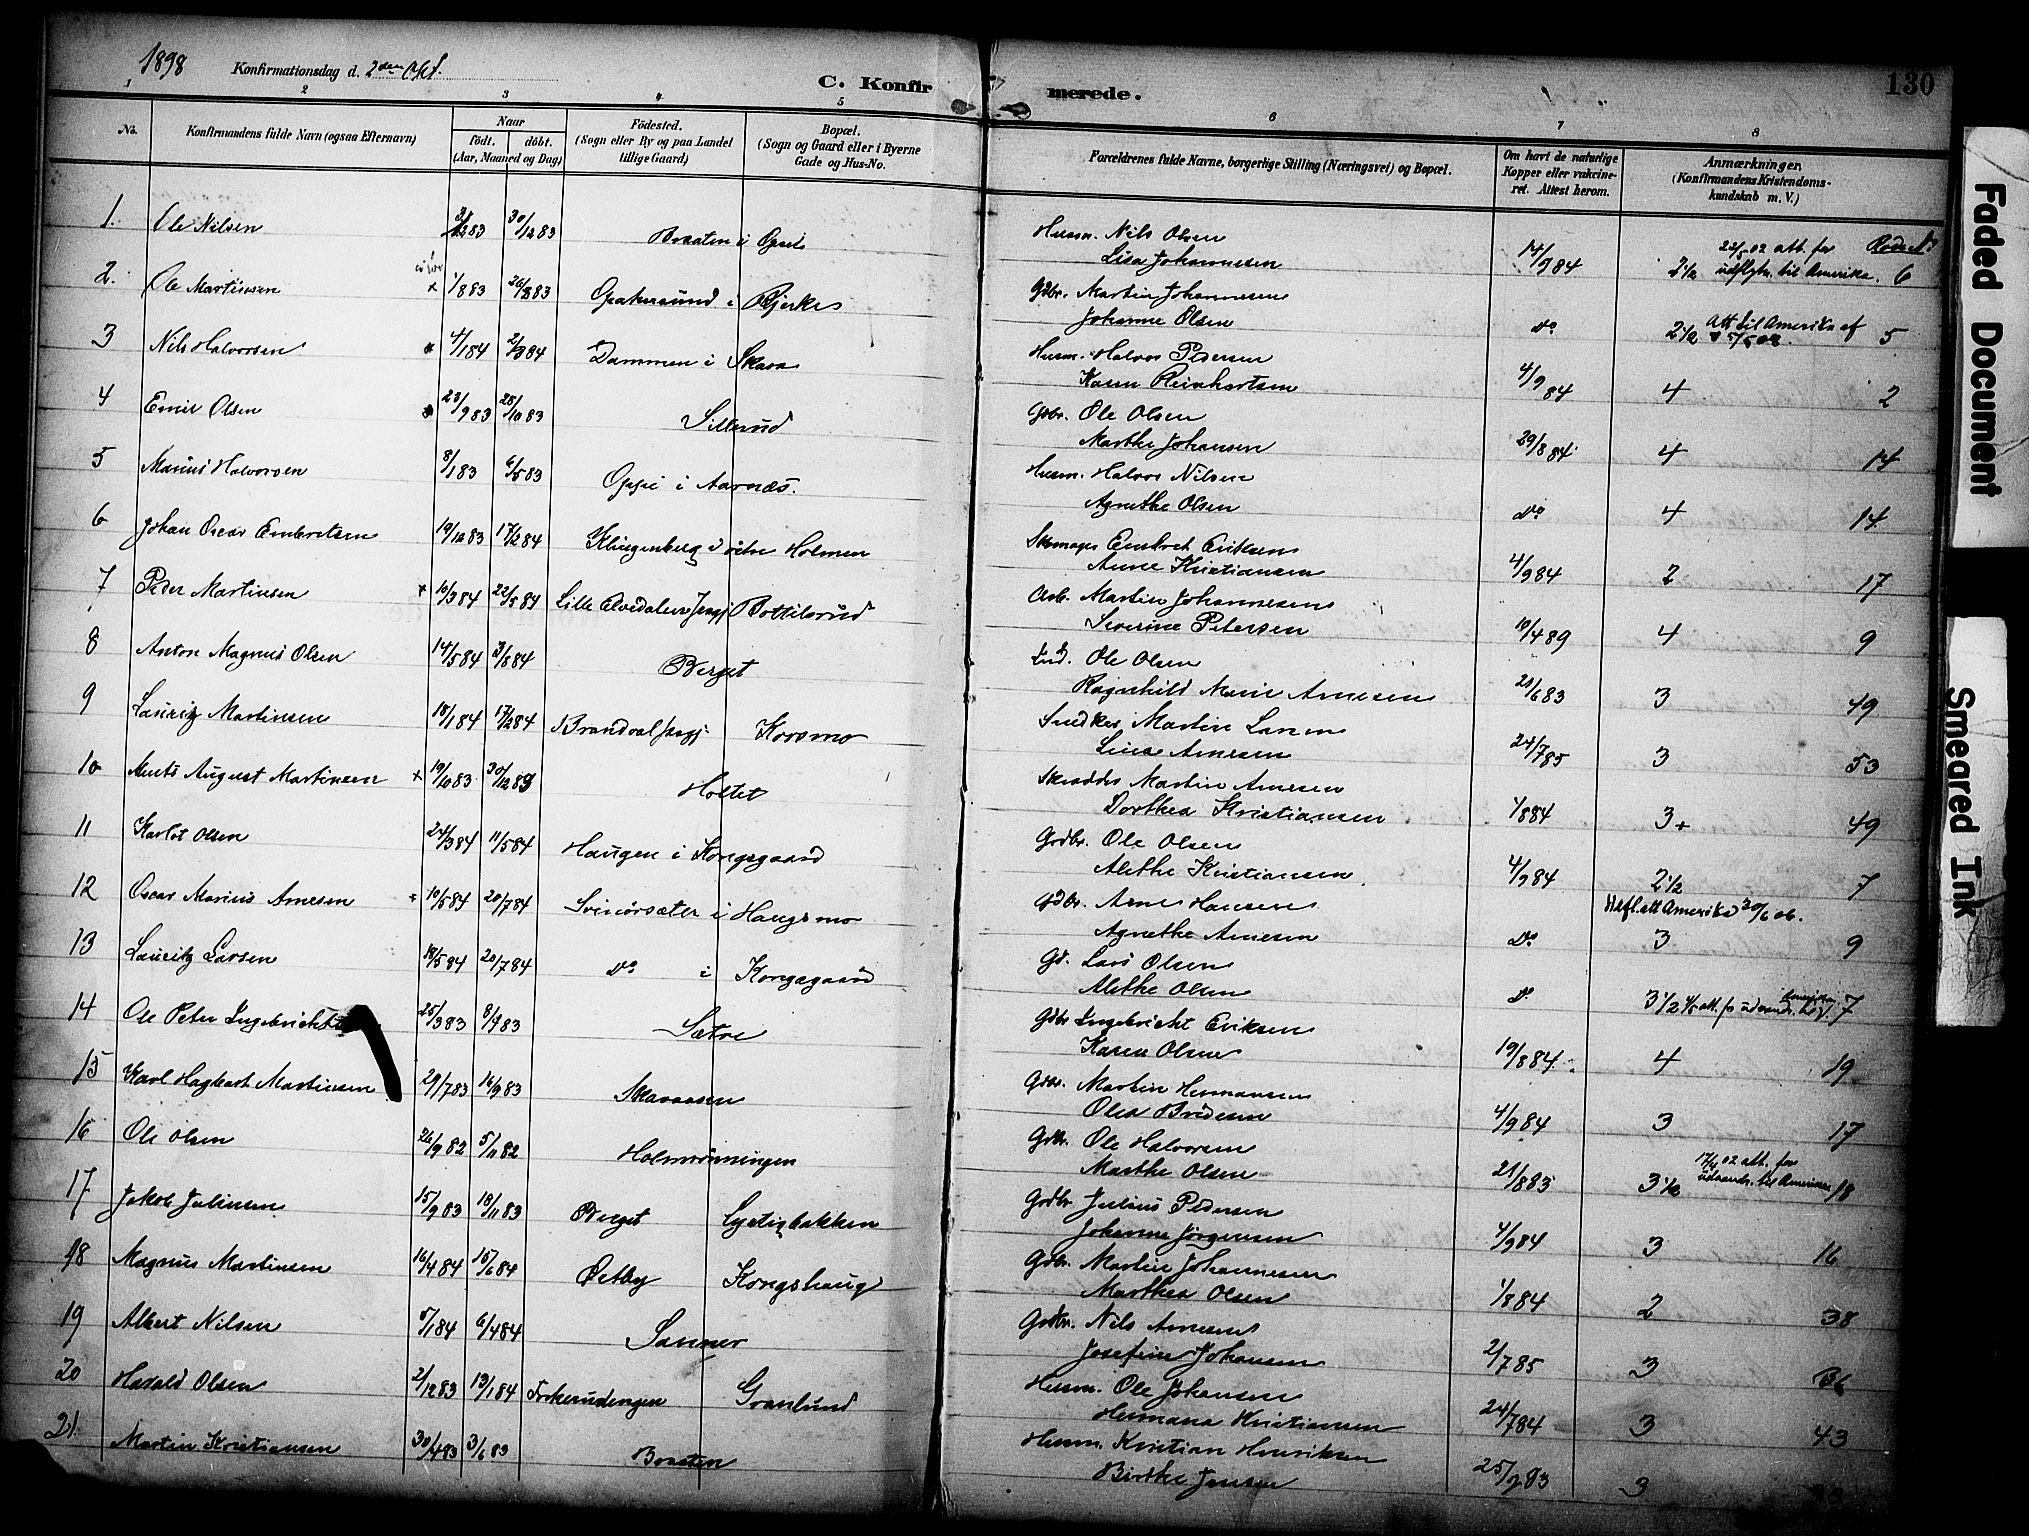 1898 Konfirmationsdag d. 2den Okt. C. Konfirmerede. 130
1 2 3 4 5 6 7 8
No. Konfirmandens fulde Navn (ogsaa Efternavn) Naar födt. döbt. (Aar, Maaned og Dag) Födested. (Sogn eller By og paa Landet tillige Gaard) Bopæl. (Sogn og Gaard eller i Byerne Gade og Hus-No. Forældrenes fulde Navne, borgerlige Stilling (Næringsvei) og Bopæl. Om havt de naturlige Kopper eller vakcineret. Attest herom. Anmærkninger. (Konfirmandens Kristendomskundskab m. V.)
1. Ole Nilsen 30/12 83 Braaten i Opset Husm. Nils Olsen
Lisa Johannesen 14/9 84 2 1/2 22/5 02 att. for udflytn. til Amerika. 6
2. Ole Martinsen 1/8 83 26/8 83 i Bjerke Gdbr. Martin Johannesen
Johanne Olsen Do 2 1/2 Att. til Amerika af 5
3 Nils Halvorsen 4/1 84 2/3 84 Dammen i Skara Husm. Halvor Pedersen
Karen Reinhartsen 4/9 84 4 2
4 Emil Olsen 23/9 83 28/10 83 Sillerud Gdbr. Ole Olsen
Marthe Johansen 29/8 84 4 14
5 Marius Halvorsen 8/1 83 6/5 83 Opset i Aarnæs. Husm. Halvor Nilsen
Agnethe Olsen Do 4 14
6 Johan Oscar Embretsen 19/12 83 17/2 84 Klingenberg i östre Holmen Skomager Embret Eriksen
Anne Kristiansen 4/9 84 2 17
7 Peder Martinsen x 10/3 84 22/5 84 Lille Elvedalen Prgj. Bottilsrud Arb. Martin Johannesen
Severine Petersen 10/4 89 4 9
8 Anton Magnus Olsen 14/5 84 3/8 84 Berget Ind. Ole Olsen
Ragnhild Marie Arnesen 21/6 83 3 49
9 Lauritz Martinsen 18/1 84 17/2 84 Brandval prgj. Korsmo Snedker Martin Larsen
Lina Arnesen 24/7 85 3 53
10 Ants August Martinsen x 19/10 83 30/12 83 Holtet Skrædder Martin Arnesen
Dorthea Kristiansen 1/8 84 3+ 49
11 Karlot Olsen 24/3 84 11/5 84 Haugen i Kongsgaard Grdbr. Ole Olsen
Alethe Kristiansen 4/9 84 2 1/2 7
12 Oscar Marius Arnesen 10/5 84 20/7 84 Svinörsæter i Haugsmo Gdbr. Arne Hansen Udfl. att Amerika 30/6 06.
Agnethe Arnesen Do 3 9
13 Lauritz Larsen 18/5 84 20/7 84 Do i Kongsgaard Gd. Lars Olsen
Alethe Olsen Do 3 1/2 7
14 Ole Peter Ingebrichts 25/3 83 8/4 83 Sætre Gdbr Ingebricht Eriksen
Karen Olsen 19/8 84 4 19
15 Karl Hagbart Martinsen 29/7 83 16/9 83 Skaraasen Gdbr. Martin Hermansen
Olea Bredesen 4/9 84 3 17
16 Ole Olsen 26/9 82 5/11 82 Holmrönningen Gdbr. Ole Halvorsen
Marthe Olsen 21/8 83 3 1/2 17/4 02 att. for udvandr. til Amerika 18
17 Jakob Juliusen 15/9 83 18/11 83 Berget Lystigbakken Grdbr Julius Pedersen
Johanne Jörgensen 4/9 84 3 16
18 Magnus Martinsen 16/4 84 15/6 84 Östby Kongshaug Gdbr. Martin Johannesen
Marthea Olsen 1/8 84 2 38
19 Albert Nilsen 5/1 84 6/4 84 Sanner Grdbr. Nils Arnesen
Josefine Johansen 2/7 85 3 36
20 Harald Olsen 2/12 83 13/1 84 Torkerudengen Granlund Husm. Ole Johansen
Hermana Kristiansen 24/7 84 3 43
21. Martin Kristiansen 30/4 83 3/6 83 Braaten Husm. Kristian Henriksen
Birthe Jensen 25/9 83 3
Faded Document
Smeared Ink